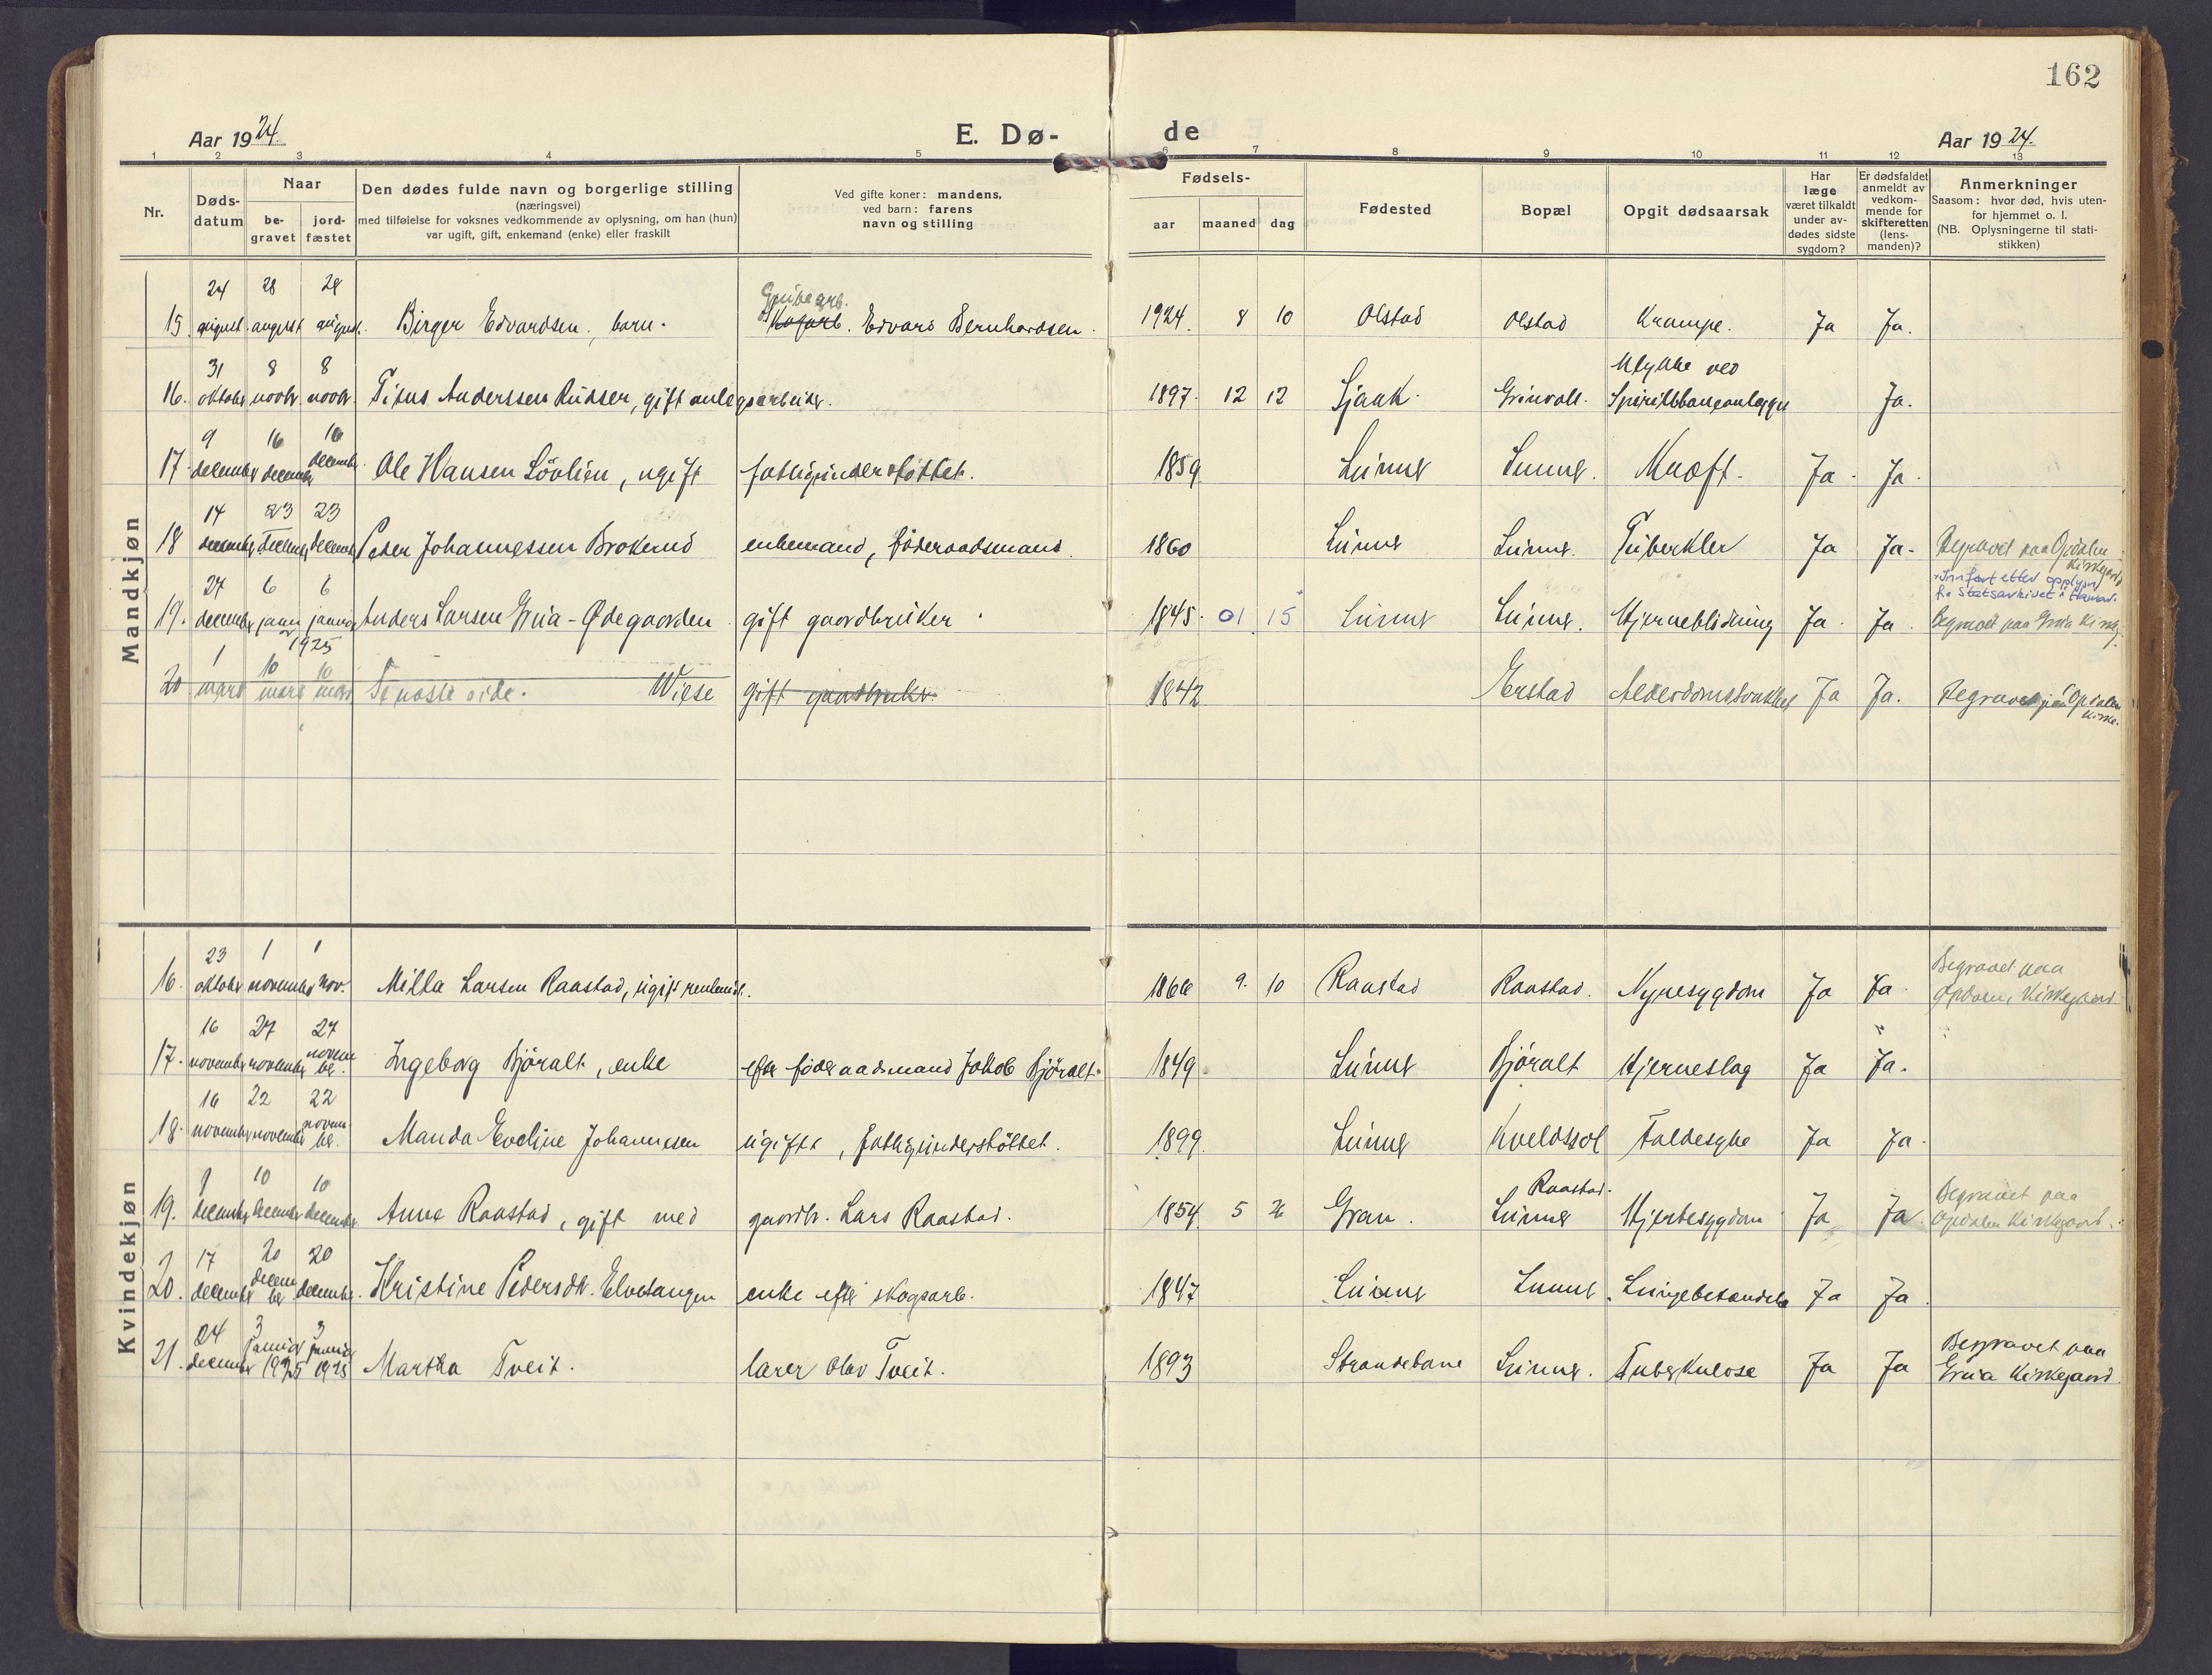 162
Aar 1924.
E. Dø-
de
Aar 1924.
1 2 3 4 5 6 7 8 9 10 11 12 13
Nr.
Døds-
datum
Naar
be-
gravet
jord-
fæstet
Den dødes fulde navn og borgerlige stilling
(næringsvei)
med tilføielse for voksnes vedkommende av oplysning, om han (hun)
var ugift, gift, enkemand (enke) eller fraskilt
Ved gifte koner: mandens,
ved barn: farens
navn og stilling
Fødsels-
aar maaned dag
Fødested
Bopæl
Opgit dødsaarsak
Har
læge
været tilkaldt
under av-
dødes sidste
sygdom?
Er dødsfaldet
anmeldt av
vedkom-
mende for
skifteretten
(lens-
manden)?
Anmerkninger
Saasom: hvor død, hvis uten-
for hjemmet o. l.
(NB. Oplysningerne til stati-
stikken)
Mandkjøn
24 28 28
Grubearb.
15. august. august august. Birger Edvardsen, barn. Edvard Bernhardsen. 1924. 8 10 Olstad Olstad Krampe. Ja Ja.
31 8 8
Ulykke ved
16. oktober novbr. novbr. Titus Anderssen gift anlegsarbeider. 1897. 12 12 Sjaak. Grinvoll. Ja.
9 16 16
17. december december decembr. Ole Hansen Lövlien, ugift fattigunderstöttet. 1859 Lunner Lunner. Kræft. Ja. Ja.
14 23 23
18 december december december Peder Johannessen Brokerud enkemand, föderaadsmand. 1860 Lunner Lunner. Tuberkler Ja Ja. Begravet paa Opdalen
Kirkegaard
27 6 6
Innført etter opplysn.
fra Statsarkivet i Hamar.
19. december januar januar Anders Larsen Grua-Ødegaarden gift gaardbruker 1845. 01. 15 Lunner Lunner. Hjerneblödning Ja. Ja. Begravet paa Grua Kirkeg.
1925
1 10 10
20 mars mars mars Se naste side. Wiese gift gaardbruker. 1842 Erstad Alderdomssvakhet Ja Ja. Begravet paa Opdalen
Kirke.
Kvindekjøn
23 1 1
Begravet paa
16. oktober november nov. Milla Larsen Raastad, ugift 1866 9. 10 Raastad Raastad. Nyresygdom Ja Ja. Opdalen Kirkegaard
16 27 27
17. november november november. Ingeborg Björalt, enke efter föderaadsmand Jakob Björalt. 1849. Lunner Björalt Hjerneslag Ja Ja.
16 22 22
18. november november november. Manda Eveline Johannesen ugift, fattigunderstöttet. 1899. Lunner Kveldssol Faldesyke Ja Ja.
10 10
Raastad.
Begravet paa
19. december december december. Anne Raastad, gift med gaardbr. Lars Raastad. 1854 5 26 Gran. Lunner Hjertesygdom Ja Ja. Opdalen Kirkegaard.
17 20 20
20. december december december. Kristine Pedersdtr. Elvetangen enke efter skogsarb. 1847 Lunner Lunner Lungebetændelse Ja Ja
24 3 3
januar januar
Begravet paa
21. december 1925 1925 Martha Tveit. lærer Olav Tveit. 1893 Strandebarm Lunner. Tuberkulose Ja Ja Grua Kirkegaard.